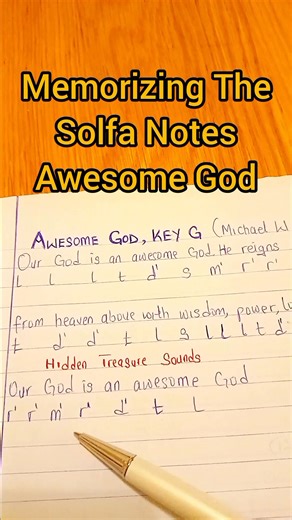 Memorizing The
Solfa Notes
Awesome God
AWESOME GOD, KEY G (Michael W
Our God is an awesome God. He reigns
L L L t d' s m' r' r'
from heaven above with wisdom, power,
t d' d' t L s L L L t d'
Hidden Treasure Sounds
Our God is an awesome God
r' r' m' r' d' t L